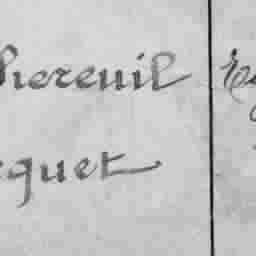 hereuil
equet